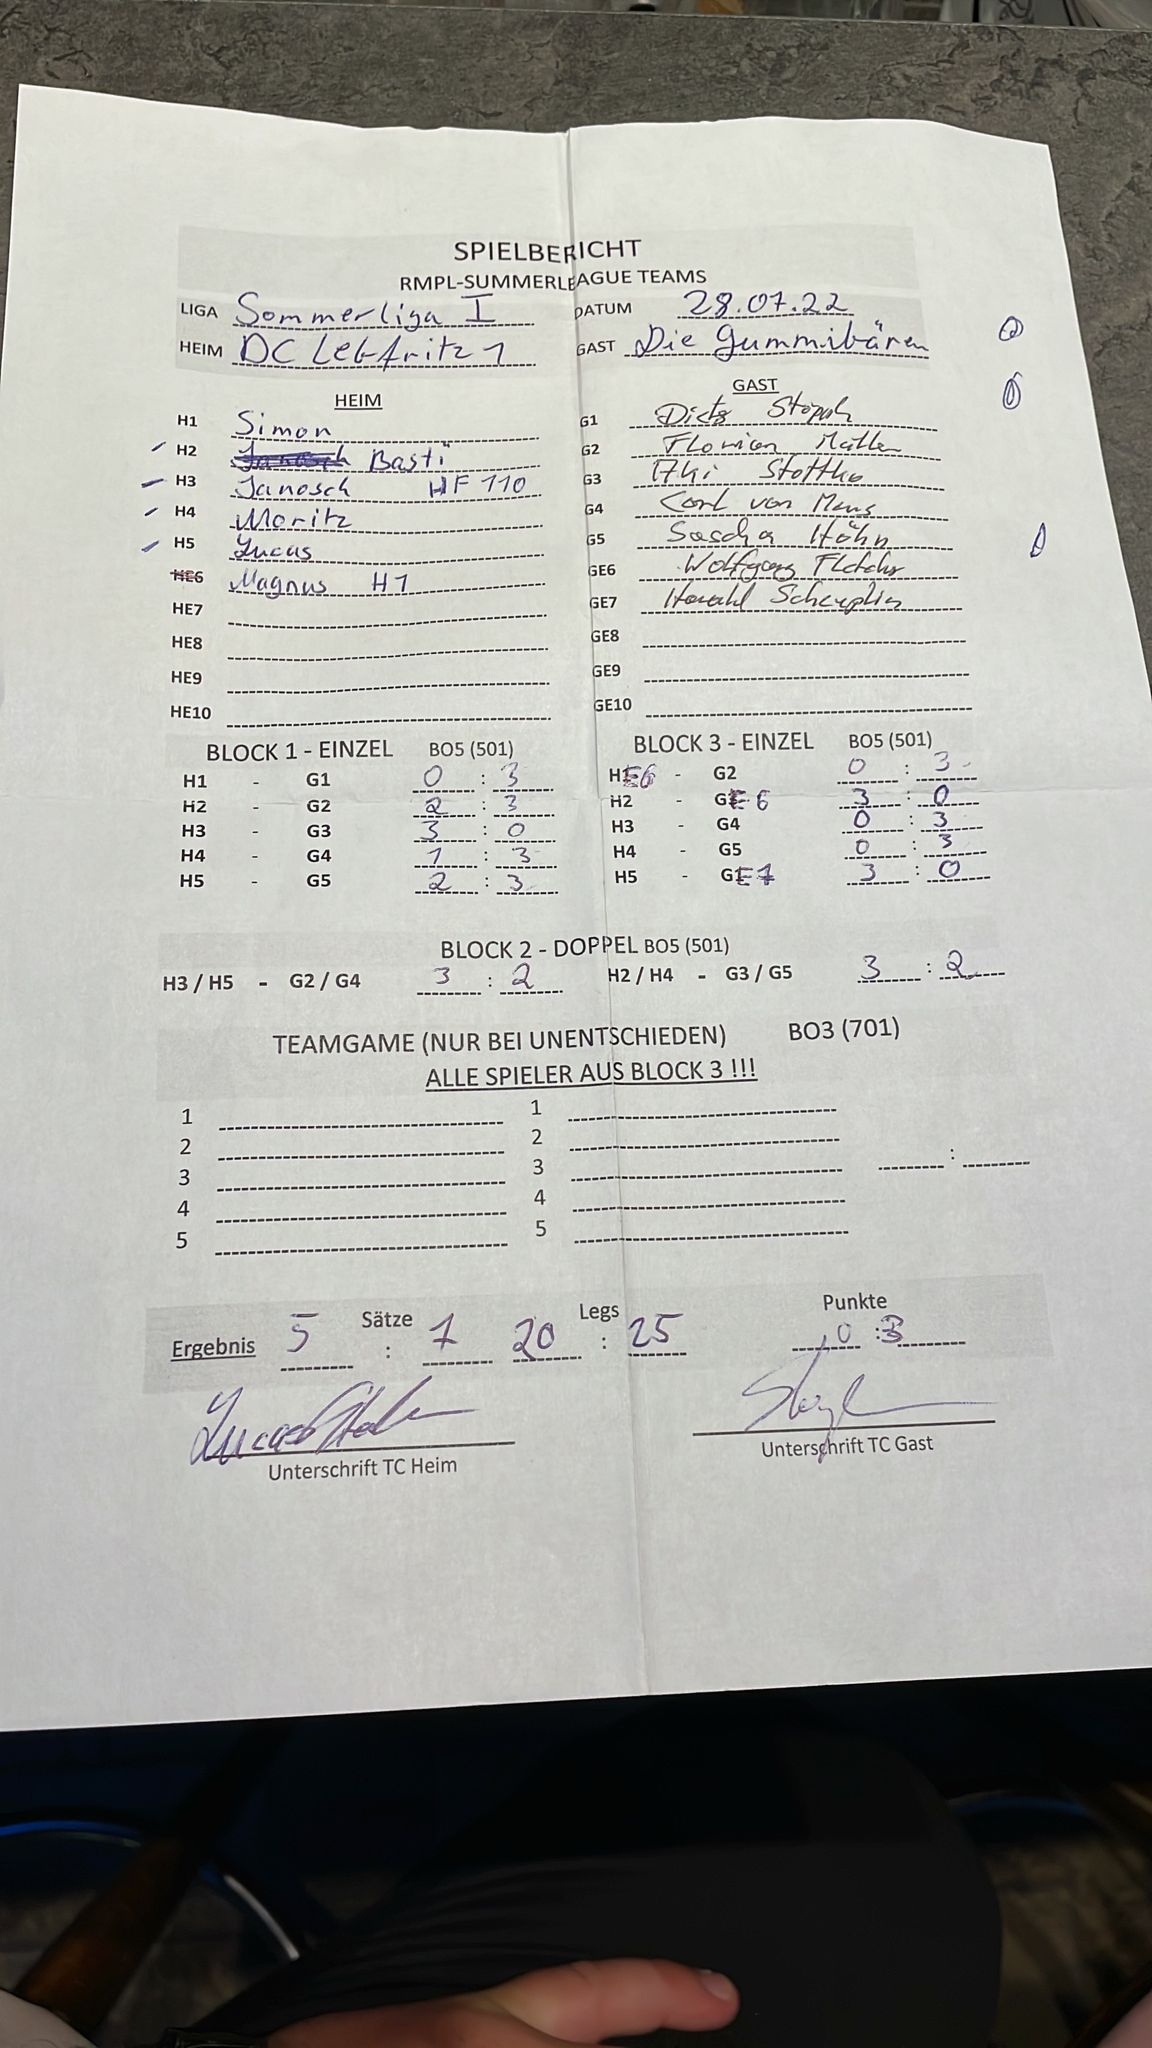 SPIELBERICHT
RMPL-SUMMERLEAGUE TEAMS
LIGA Sommerliga I DATUM 28.07.22
HEIM DC Lebfritz 1 GAST Die Gummibären
HEIM GAST
H1 Simon G1 Stöpph
H2 Basti G2 Florian Müller
H3 Janosch HF 110 G3
H4 Moritz G4 Carl von
H5 Lucas G5 Sascha Höhn
HE6 Magnus H1 GE6 Wolfgang
HE7 GE7 Harald
HE8 GE8
HE9 GE9
HE10 GE10
BLOCK 1 - EINZEL BO5 (501) BLOCK 3 - EINZEL BO5 (501)
H1 - G1 0 : 3 HE6 - G2 0 : 3
H2 - G2 2 : 3 H2 - GE6 3 : 0
H3 - G3 3 : 0 H3 - G4 0 : 3
H4 - G4 1 : 3 H4 - G5 0 : 3
H5 - G5 2 : 3 H5 - GE7 3 : 0
BLOCK 2 - DOPPEL BO5 (501)
H3 / H5 - G2 / G4 3 : 2 H2 / H4 - G3 / G5 3 : 2
TEAMGAME (NUR BEI UNENTSCHIEDEN) BO3 (701)
ALLE SPIELER AUS BLOCK 3 !!!
1 1
2 2
3 3 :
4 4
5 5
Sätze Legs Punkte
Ergebnis 5 : 7 20 : 25 0 : 3
Unterschrift TC Heim Unterschrift TC Gast